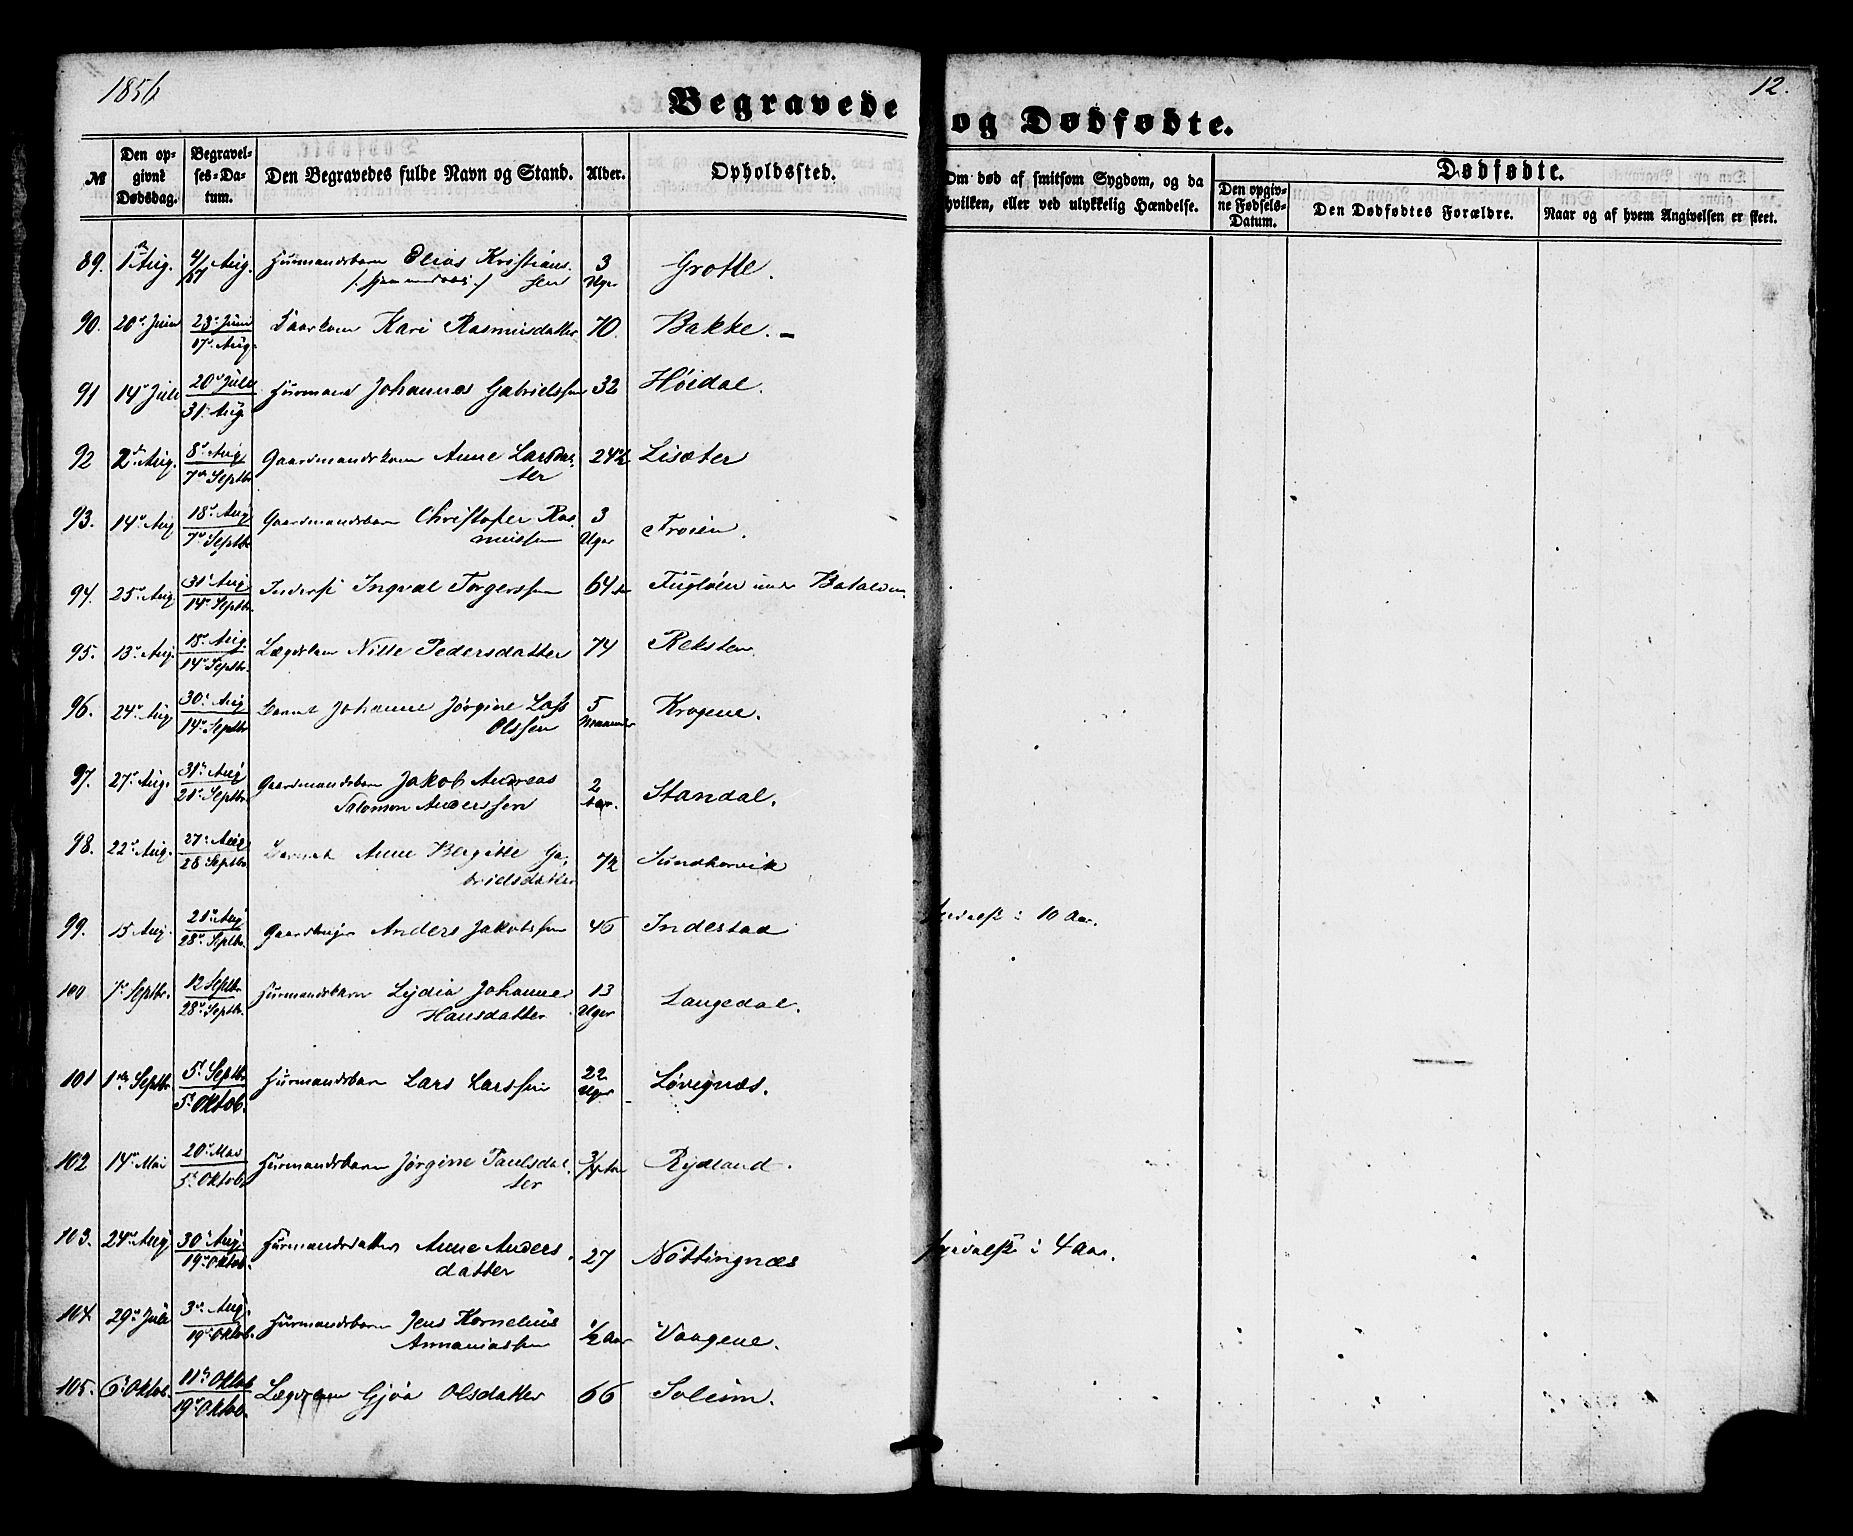 1856
12.
Begravede og Dødfødte.
№
Den opgivne Dødsdag.
Begravelses-Datum.
Den Begravedes fulde Navn og Stand.
Alder.
Opholdssted.
Om død af smitsom Sygdom, og da hvilken, eller ved ulykkelig Hændelse.
Dødfødte.
Den opgivne Fødsels-Datum.
Den Dødfødtes Forældre.
Naar og af hvem Angivelsen er skeet.
89. Aug. Aug. Huusmandsbarn Elias Kristians 3 Grotle.
sen Uger
90. 20de Juni 23de Juni Kari Rasmusdatter 70. Bakke.
17de Aug.
91 14de Juli 20de Juli Huusmand Johannes Gabrielssen 32 Høidal.
31te Aug.
92 2den Aug. 8de Aug Gaardmandskone Anne Larsdat 24½ Lisæter
7de Septbr. ter
93. 14de Aug 18de Aug Gaardmandsbarn Christofer Ras 3 Troien.
7de Septbr mussen Uger
94. 25de Aug 31te Aug Inderst Ingval Torgerssen 64 Fugløen under Batalden
14de Septbr.
95. 13de Aug. 18de Aug. Lægdslem Nille Pedersdatter 74 Reksten.
14de Septbr.
96. 24de Aug 30te Aug Barnet Johanne Jørgine 5 Krogene.
14de Septbr Olssen Maaneder
97. 27de Aug. 31te Aug Gaardmandsbarn Jakob Andreas 2 Standal.
21de Septbr. Salomon Anderssen Aar.
98. 22de Aug. 27de Aug Barnet Anne Bergitte Ga ½
28 Septbr. brielsdatter
99. 15 Aug. 21de Aug Gaardbruger Anders Jakobssen 46 Indestad 10 Aar.
28de Septbr.
100 7de Septbr. 12 Septbr. Huusmandsbarn Lydia Johanne 13 Langedal.
28de Septbr. Hansdatter Uger
101 1ste Septbr 5te Septbr Huusmandsbarn Lars Larssen 22 Løvignæs.
5te Oktob. Uger
102 14de Mai 20de Mai Huusmandsbarn Jørgine Paulsdat ¾ Aar Rydland.
5te Oktob. ter
103. 24de Aug 30te Aug. Huusmandsdatter Anne Anders 27 Nøttingnæs 4 Aar.
19de Oktob. datter
104. 29de Juli 3de Aug. Huusmandsbarn Jens Kornelius ½ Aar Vaagene.
19de Oktob. Annaniassen
105. 6te Oktob. 11te Oktob Lægdslem Gjøa Olsdatter 66 Soleim.
19de Oktob.